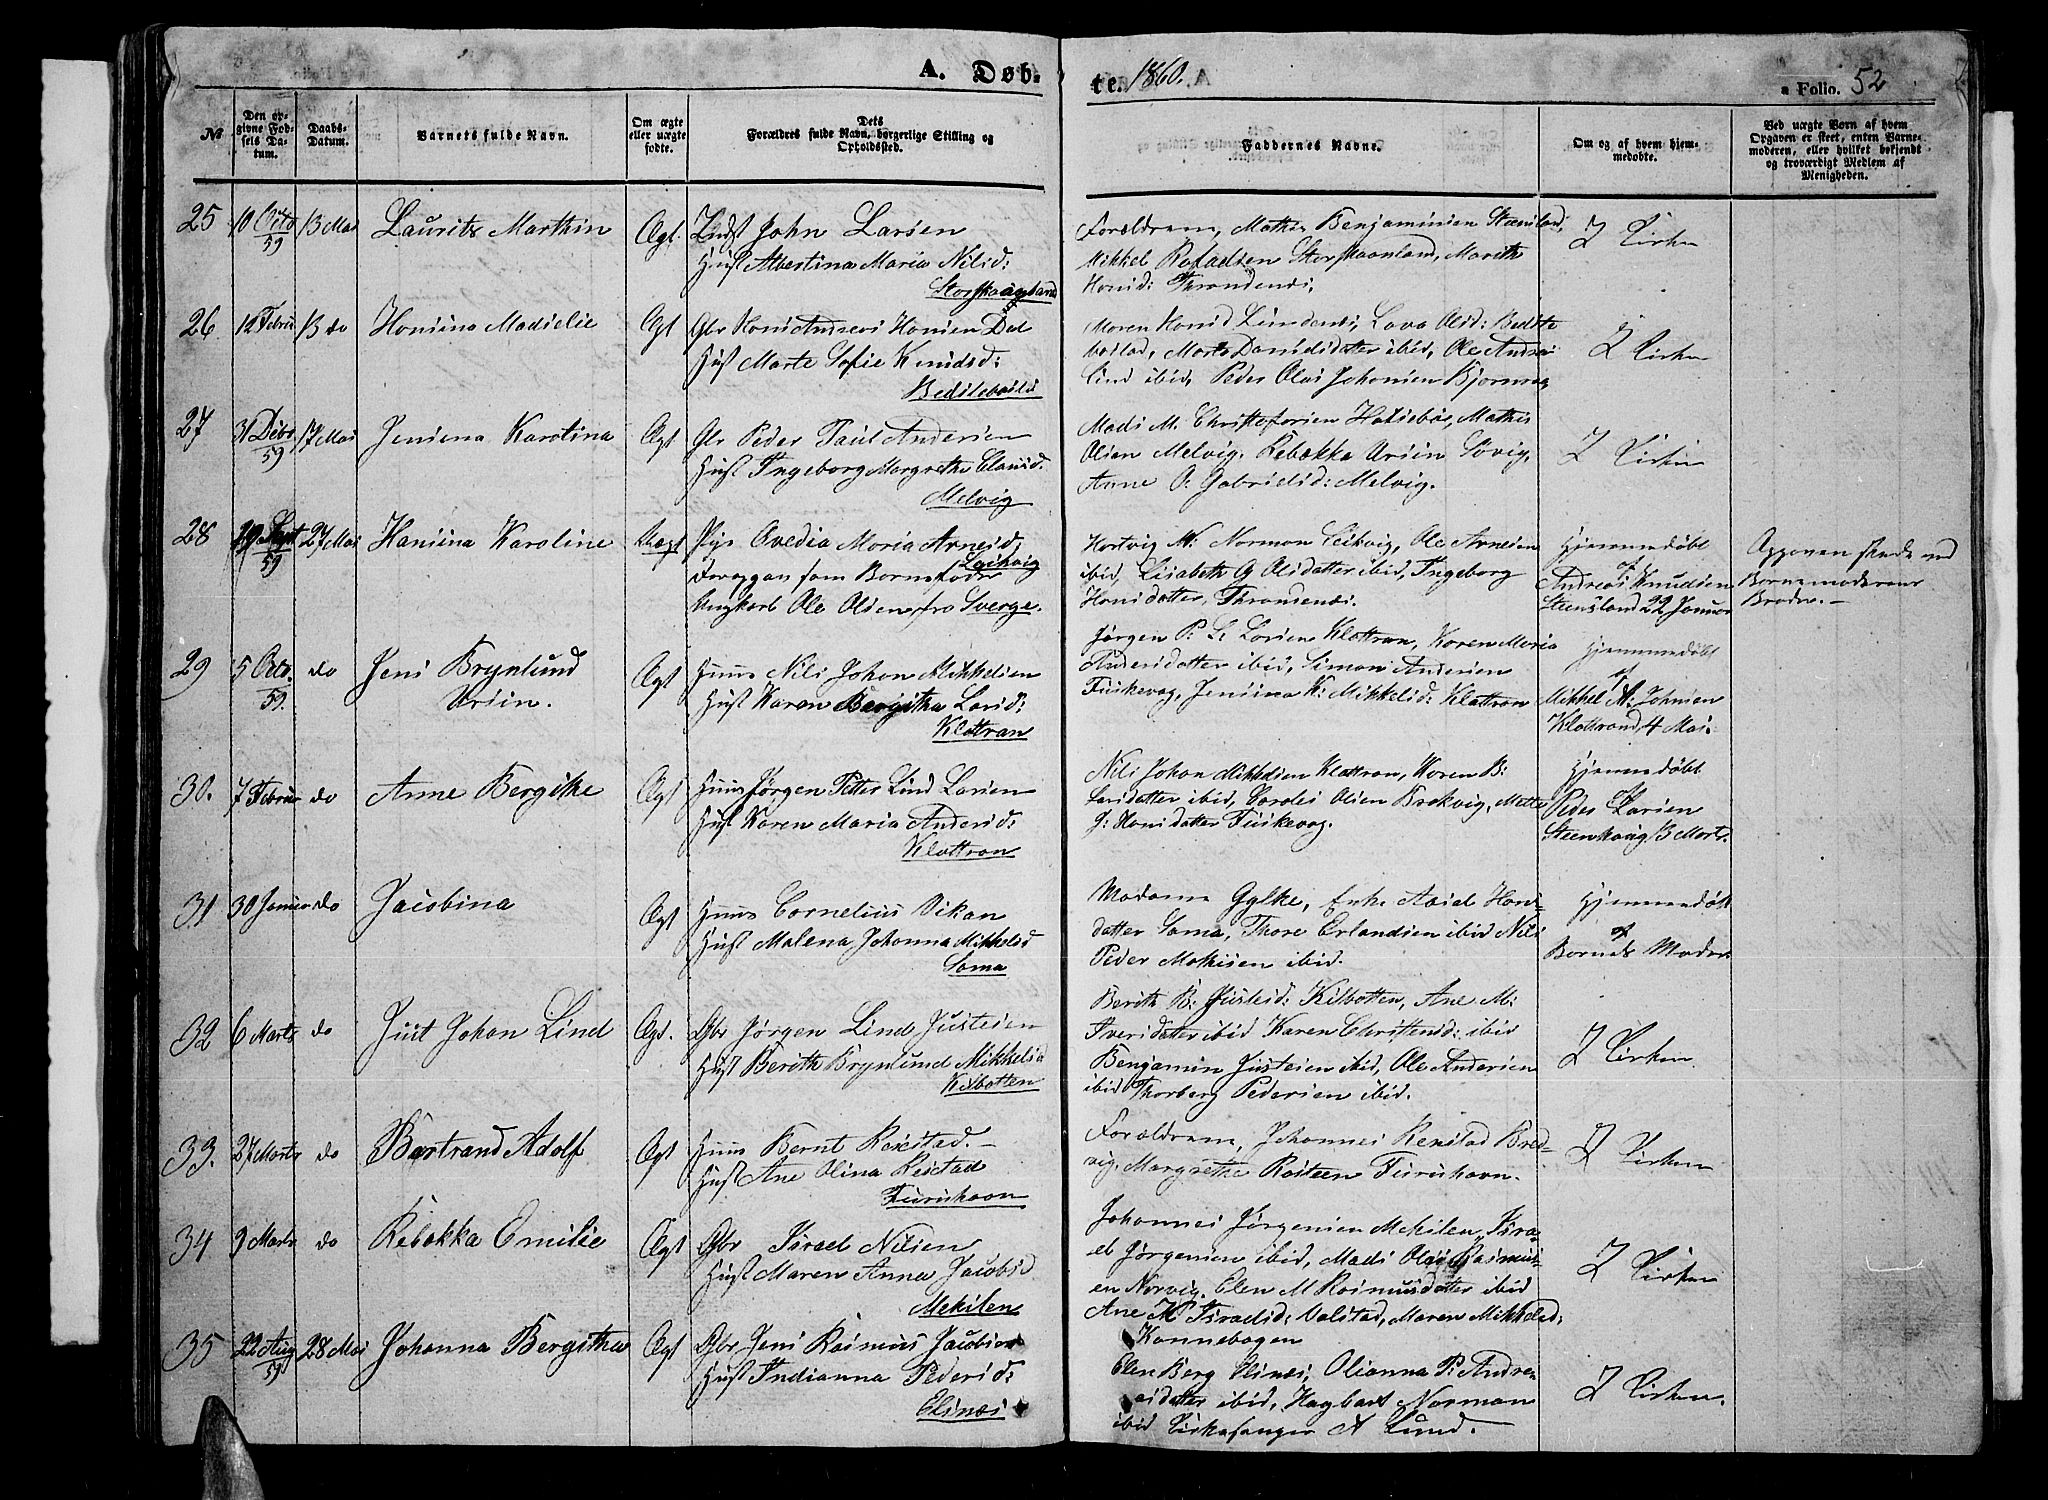 A. Døb-
te. 1860.
a Folio. 52
№
Den opgivne Fødsels Datum.
Daabs-Datum.
Barnets fulde Navn.
Om ægte eller uægte fødte.
Dets Forældres fulde Navn, borgerlige Stilling og Opholdssted.
Faddernes Navne.
Om og af hvem hjemmedøbte.
Ved uægte Børn af hvem Opgaven er skeet, enten Barnemoderen, eller hvilket bekjendt og troværdigt Medlem af Menigheden.
25 10 Octo 59 13 Mai Laurits Marthin Ægt. Indst John Larsen
Hust Albertina Maria Nilsd:
Storskaanland
Forældrene, Mathis Benjaminsen
Mikkel Storskaanland, Marith
Hansd: Throndenæs.
I Kirken
26 12 Februar 13 do Hansina Madselie Ægt Gbr Hans Andreas Hansen
Hust Marte Sofie Knudsd:
Maren Hansd Olsd:
Marte Danielsdatter ibid, Ole Andrea
Lind ibid, Peder Olai Johansen
I Kirken
27 31 Debr 59 17 Mai Jensina Karolina Ægt Gbr Peder Paul Andersen
Hust Ingeborg Margrethe
Melvig
Mads M. Christofersen Halsebøe, Mathis
Olsen Melvig. Rebekka
Anne O. Gabrielsd: Melvig.
I Kirken
28 19 Sept 59 27 Mai Hansina Karoline Uægt Pige Ovedia Maria Arnesd:
Leikvig
som Barnefader
Ungkarl Ole Olsen fra Sverge.
Hartvig N. Norman Leikvig, Ole Arnesen
ibid, Lisabeth G Olsdatter ibid, Ingeborg
Hansdatter, Throndenæs.
Hjemmedøbt
af
Andreas Knudsen
Steensland 22 Januar
Opgaven skede ved
Barnemoderens
Broder.-
29 5 Octo. 59. do Jens Brynlund
Ursin.
Ægt Huus Nils Johan Mikkelsen
Hust Karen Bergitha Larsd:
Klottran
Jørgen P. L. Larsen Klottran, Karen Maria
Andersdatter ibid, Simon Andersen
Fiskevog, Jensina K: Mikkelsd: Klottran
Hjemmedøbt
af
Mikkel A. Johnsen
Klottrand, 4 Mai.
30. 7 Februar do Anne Bergithe Ægt Huus Jørgen Petter Lind Larsen
Hust Karen Maria Andersd:
Klottran
Nils Johan Mikkelsen Klottran, Karen B:
Larsdatter ibid, Olsen Brokvig, Mette
J: Hansdatter Fiskevog.
Hjemmedøbt
af
Peder Larsen
Steenhaug 13 Marts.
31 30 Januar do Jacobina Ægt Huus Cornelius Vikan
Hust Malena Johanna Mikkelsd
Sama
Madam Gylke, Enk. Axiel Hans-
datter Sama, Thore Erlandsen ibid Nils
Peder Mathisen ibid.
Hjemmedøbt
af
Barnets Moder
32 6 Marts do Just Johan Lind Ægt. Gbr Jørgen Lind Justesen
Hust Berith Brynlund Mikkelsd
Kilbotten
Berith B: Justesd: Kilbotten, Ane M:
Iversdatter ibid Karen Christensd: ibid
Benjamin Justesen ibid, Ole Andersen
ibid Thorberg Pedersen ibid.
I Kirken
33. 27 Marts do Bertrand Adolf Ægt Huus Bernt Reistad.-
Hust Ane Olina Reistad
Furuhavn
Forældrene, Johannes Renstad Bred-
vig, Margrethe Rosteen Furuhavn.
I Kirken
34 9 Marts do Rebekka Emilie Ægt Gbr Israel Nilsen
Hust Maren Anna Jacobsd
Mekilen
Johannes Jørgensen Mekilen, Isra-
el Jørgensen ibid, Mads Olai Rasmus-
en Norvig. Elen M Rasmusdatter ibid
Ane K Israelsd: Valstad, Maren Mikkelsd:
Kannebogen
I Kirken
35 22 Aug 59 28 Mai Johanna Bergitha Ægt Gbr Jens Rasmus Jacobsen
Hust Indianna Pedersd:
Elinæs
Elen Berg Elinæs, Olianna P: Andre-
asdatter ibid, Hagbart Norman
ibid Kirkesanger A Lund.
I Kirken.